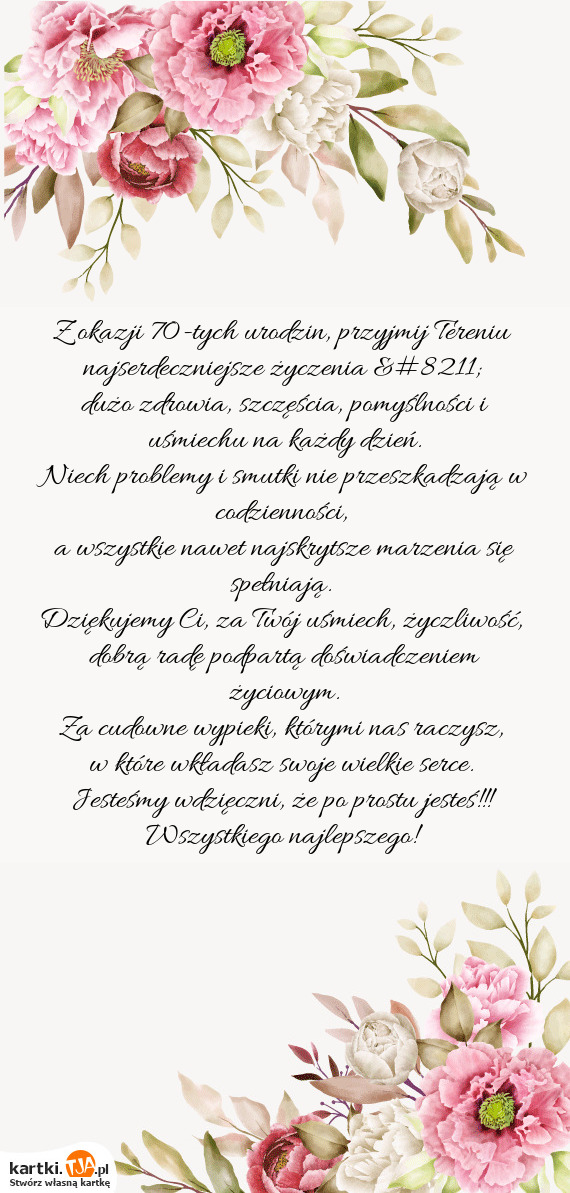 Z okazji 70 -tych urodzin, przyjmij Tereniu
najserdeczniejsze życzenia &#8211;
dużo zdrowia, szczęścia, pomyślności i
uśmiechu na każdy dzień.
Niech problemy i smutki nie przeszkadzają w
codzienności,
a wszystkie nawet najskrytsze marzenia się
spełniają.
Dziękujemy Ci, za Twój uśmiech, życzliwość,
dobrą radę podpartą doświadczeniem
życiowym.
Za cudowne wypieki, którymi nas raczysz,
w które wkładasz swoje wielkie serce.
Jesteśmy wdzięczni, że po prostu jesteś!!!
Wszystkiego najlepszego!
kartki.TJA.pl
Stwórz własną kartkę